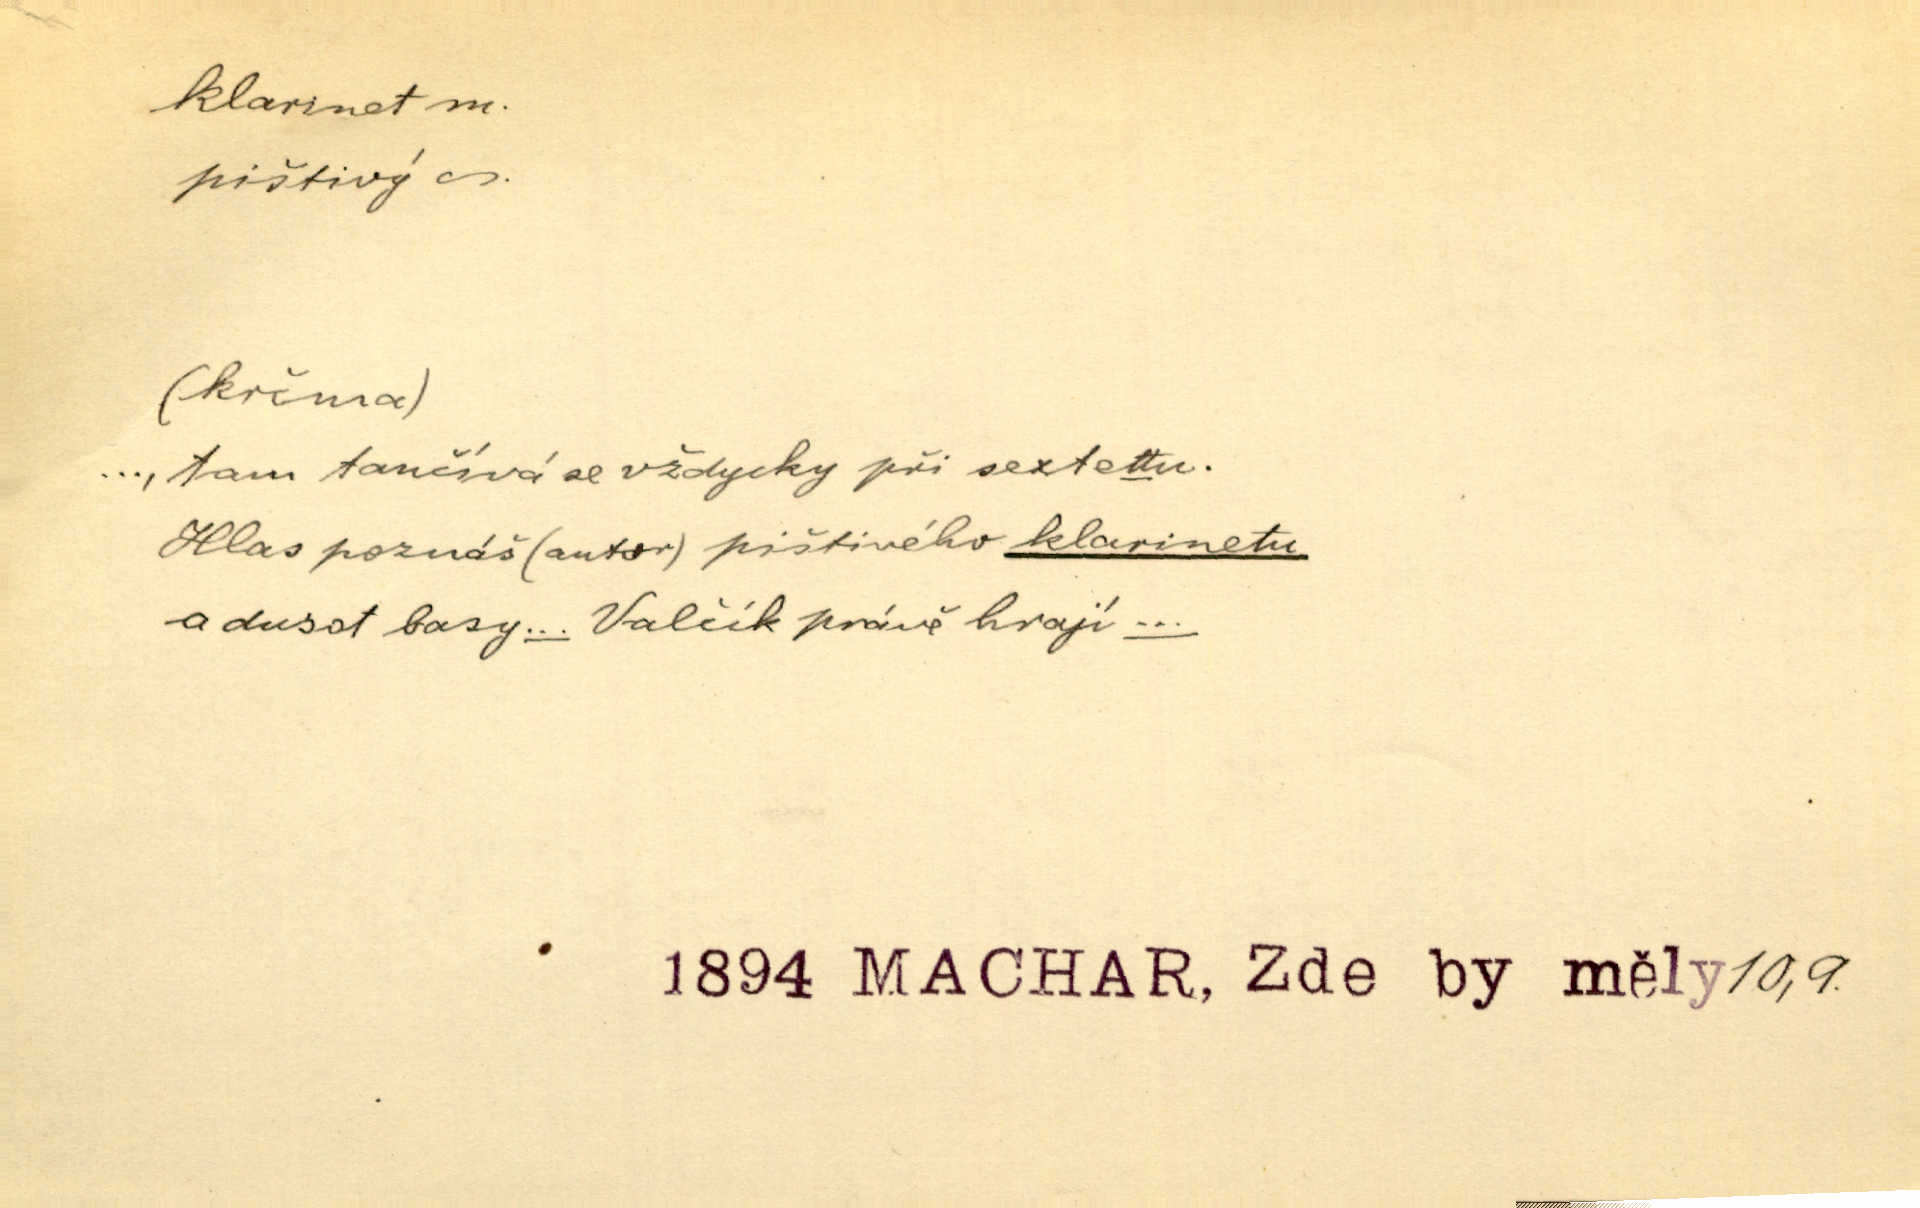 klarinet m.
pištivý a.
(krčma)
..., tam tančívá se vždycky při sextettu.
Hlas poznáš (autor) pištivého klarinetu
a dusot basy... Valčík právě hrají ...
1894 MACHAR, Zde by měly 10,9.